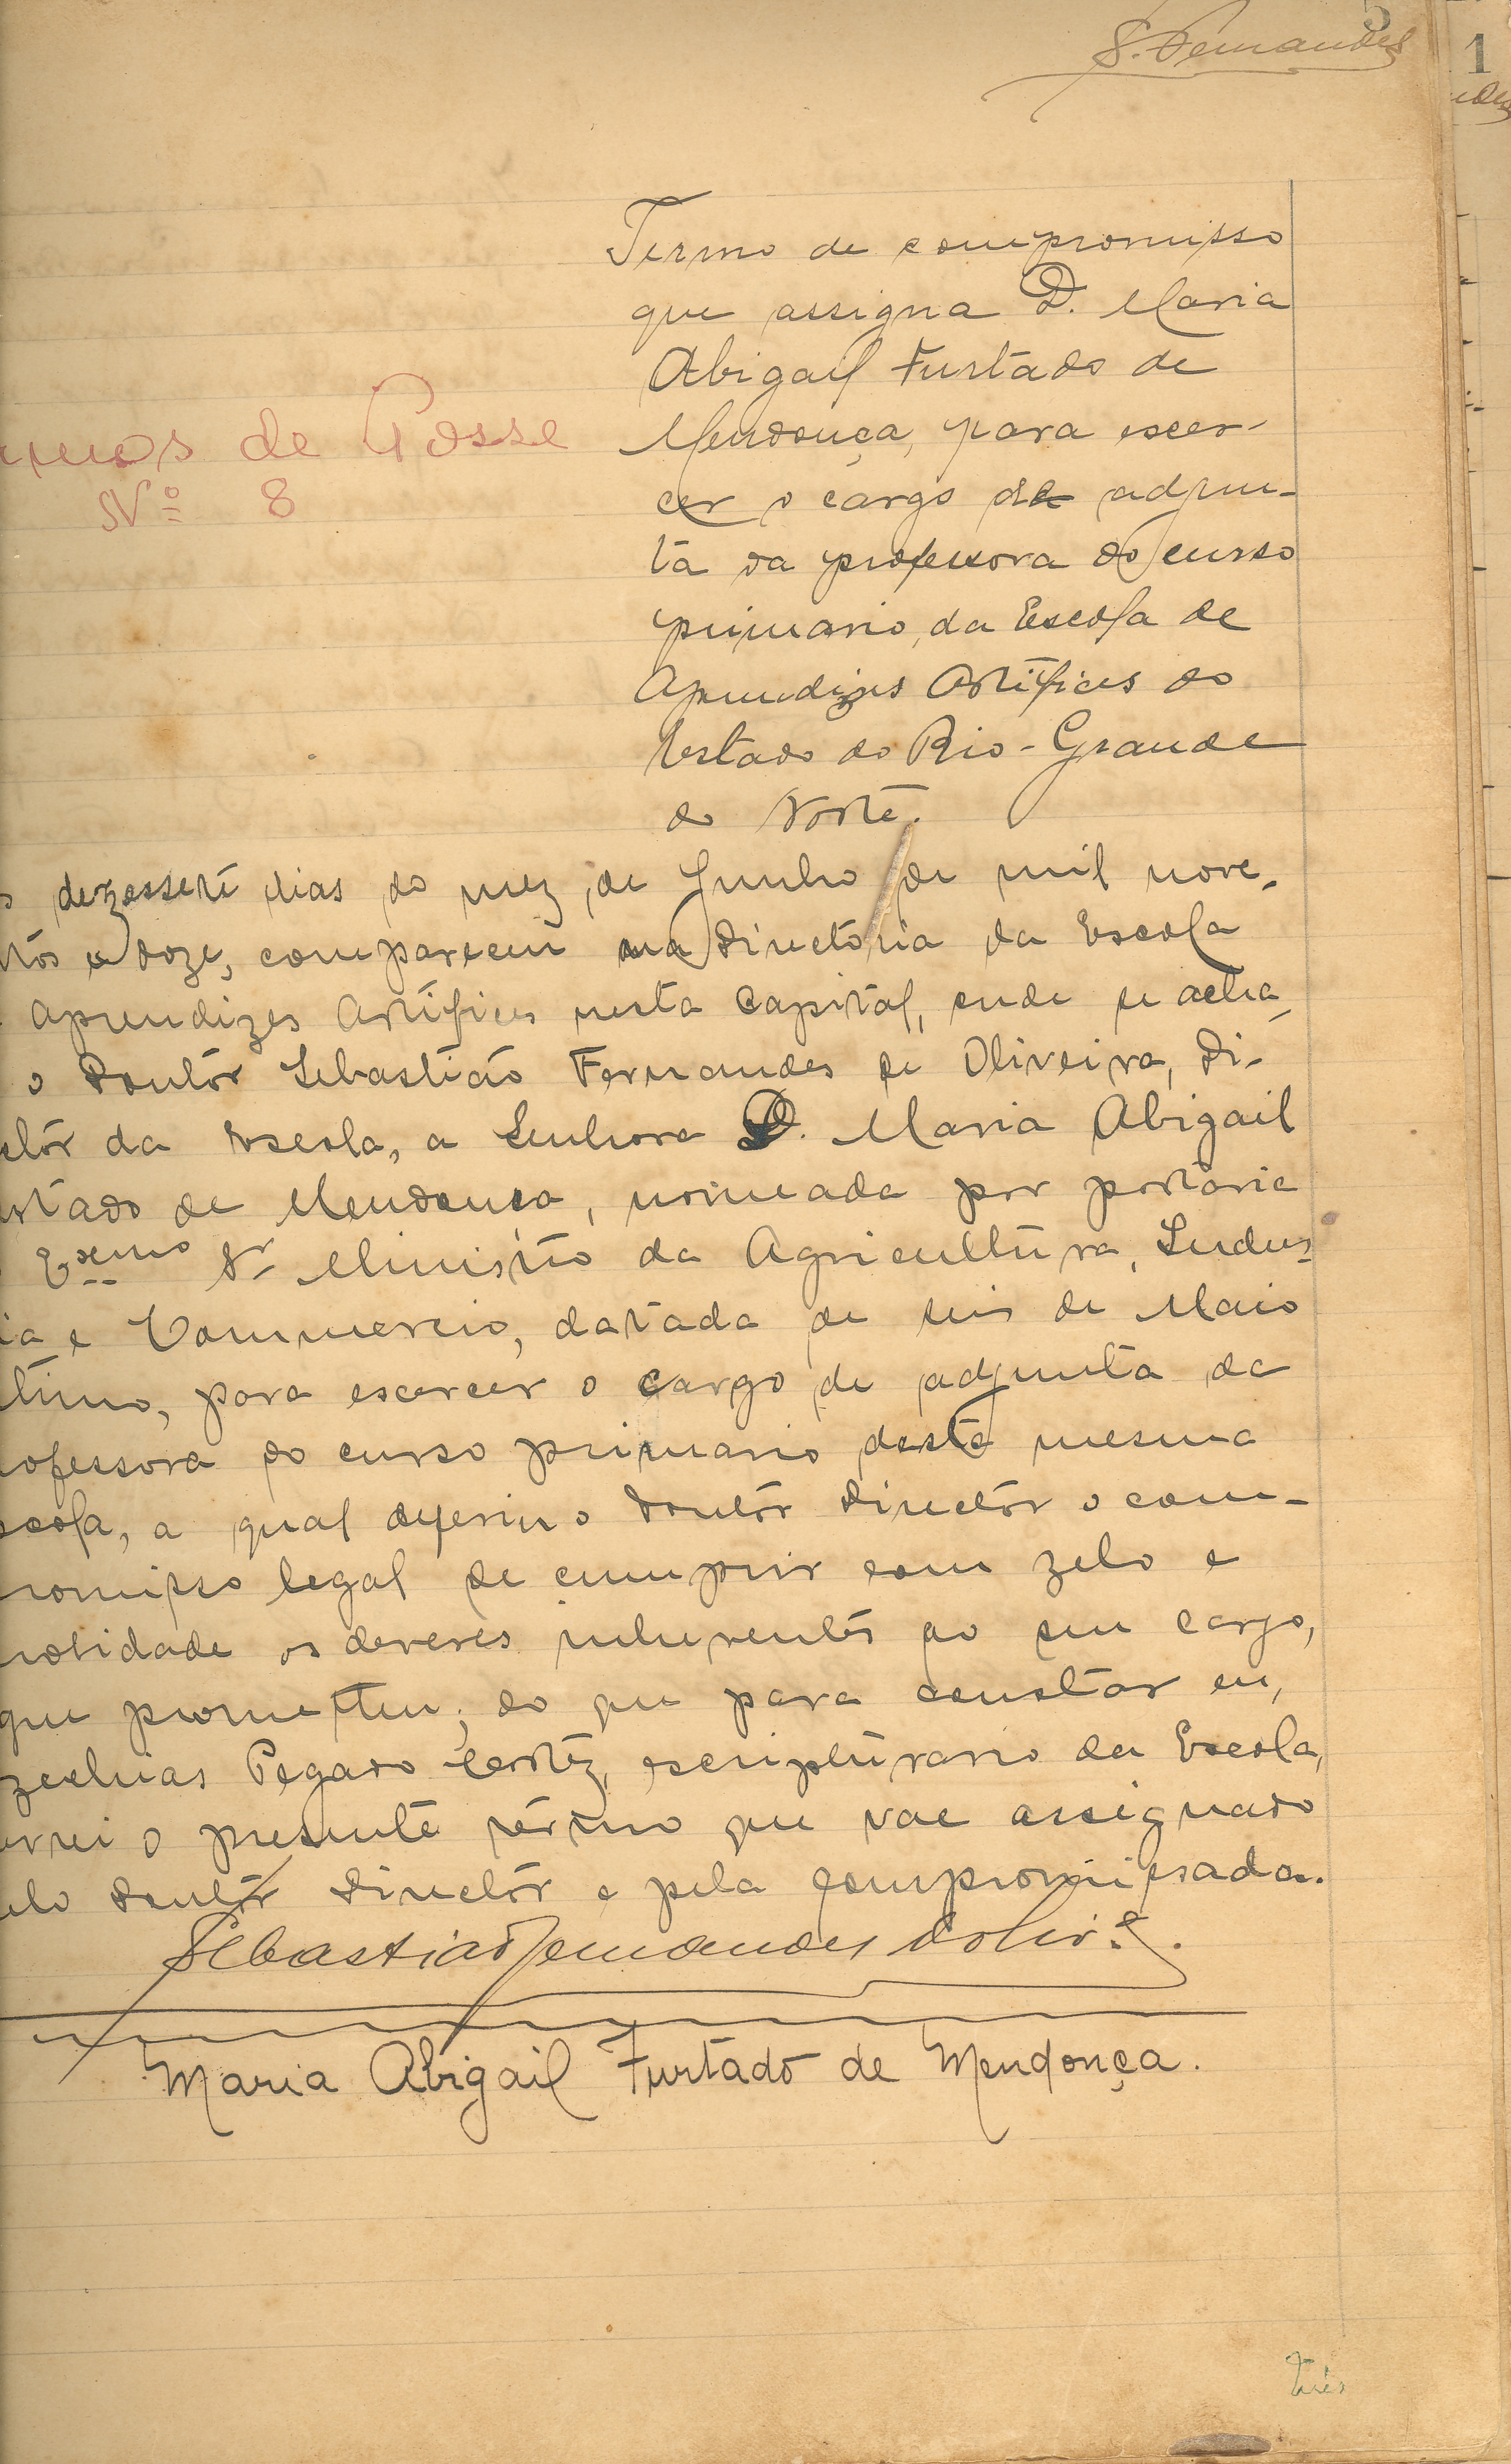 5
S. Fernandes
1
Termo de compromisso
que assigna D. Maria
Abigail Furtado de
Mendonça, para escer-
cer o cargo de adjun-
ta da professora do curso
primario, da Escola de
Aprendizes Artifices do
Estado do Rio-Grande
do Norte.
rmos de Posse
Nº 8
dezessete dias do mez de Junho de mil nove-
ntos e doze, compareceu na directoria da Escola
Aprendizes Artifices nesta Capital, onde se acha
o Doutôr Sebastião Fernandes de Oliveira, Di-
ctôr da Escola, a Senhora D. Maria Abigail
rtado de Mendonça, nomeada por portaria
Exmo Sr Ministro da Agricultura, Indus-
ia e Commercio, datada de seis de Maio
timo, para escercer o cargo de adjunta da
rofessora do curso primario desta mesma
scola, a qual deferiu o Doutôr Directôr o com-
romisso legal de cumprir com zelo e
os deveres inherentes ao seu cargo,
que prometteu; do que para constar eu,
zechias Pegado Cortêz, escripturario da Escola,
vrei o presente têrmo que vae assignado
elo Doutôr Directôr e pela compromissada.
Sebastião Fernandes d'Olivra.
Maria Abigail Furtado de Mendonça.
três